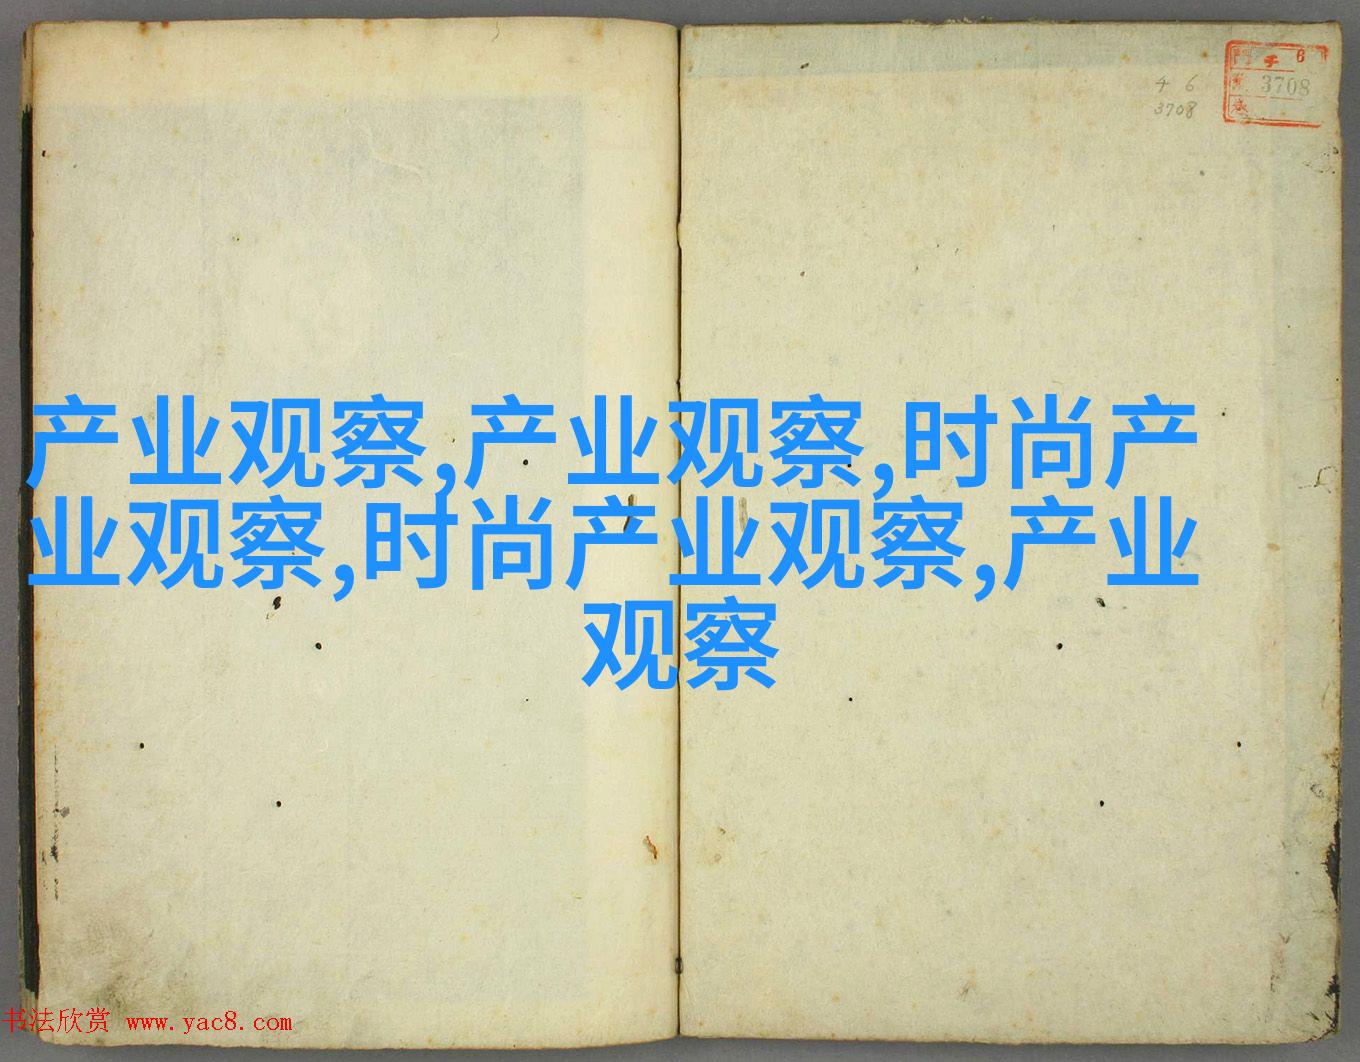 4 6
3708
門 チ 6
3708
产业观察,产业观察,时尚产
业观察,时尚产业观察,产业
观察
书法欣赏 www.yac8.com